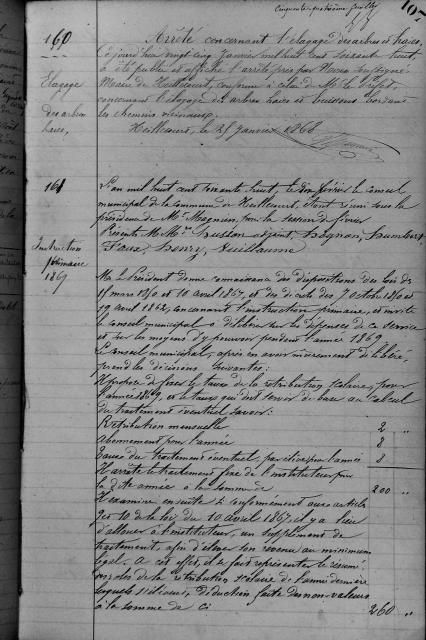 Cinquante quatrième feuillet
107
160
Arrêté concernant l'élagage des arbres et haies.
Ce jourd'hui vingt cinq Janvier mil huit cent soixante huit,
a été publié et affiché l'arrêté pris par Nous soussigné
Elagage
Maire de Heillecourt, conforme à celui de Mr le Préfet,
concernant l'élagage des arbres haies et buissons bordant
Des arbres
les chemins vicinaux.
haies,
Heillecourt, le 25 Janvier 1868
161
L'an mil huit cent soixante huit, le février le conseil
municipal de la commune de Heillecourt, étant réuni sous la
présidence de Mr Magnien, pour la session de février
Présents M. Mrs Husson adjoint, Humbert,
Instruction
Henry, Vuillaume
primaire
1869
Mr le Président donne connaissance des dispositions des lois du
15 mars 1850 et 10 avril 1867, et des décrets des 7 octobre 1850 et
19 avril 1862, concernant l'instruction primaire, et invite
le conseil municipal à délibérer sur les dépenses de ce service
et sur les moyens d'y pourvoir pendant l'année 1869
Le conseil municipal, après en avoir mûrement délibéré,
prend les décisions suivantes:
Il propose de fixer le taux de la rétribution scolaire, pour
l'année 1869, et le taux qui doit servir de base au calcul
du traitement éventuel savoir:
Rétribution mensuelle 2
Abonnement pour l'année 8
Taux du traitement éventuel, par élève, pour l'année 8
Il arrête le traitement fixe de l'instituteur pour
la dite année à la somme de 200 "
Il examine ensuite si conformément aux articles
9 et 10 de la loi du 10 avril 1867, il y a lieu
d'allouer à l'instituteur, un supplément de
traitement, afin d'élever son revenu au minimum
légal. A cet effet, il se fait représenter le résumé
des rôles de la rétribution scolaire de l'année dernière
lesquels s'élèvent, déduction faite des non-valeurs
à la somme de ci 260 "